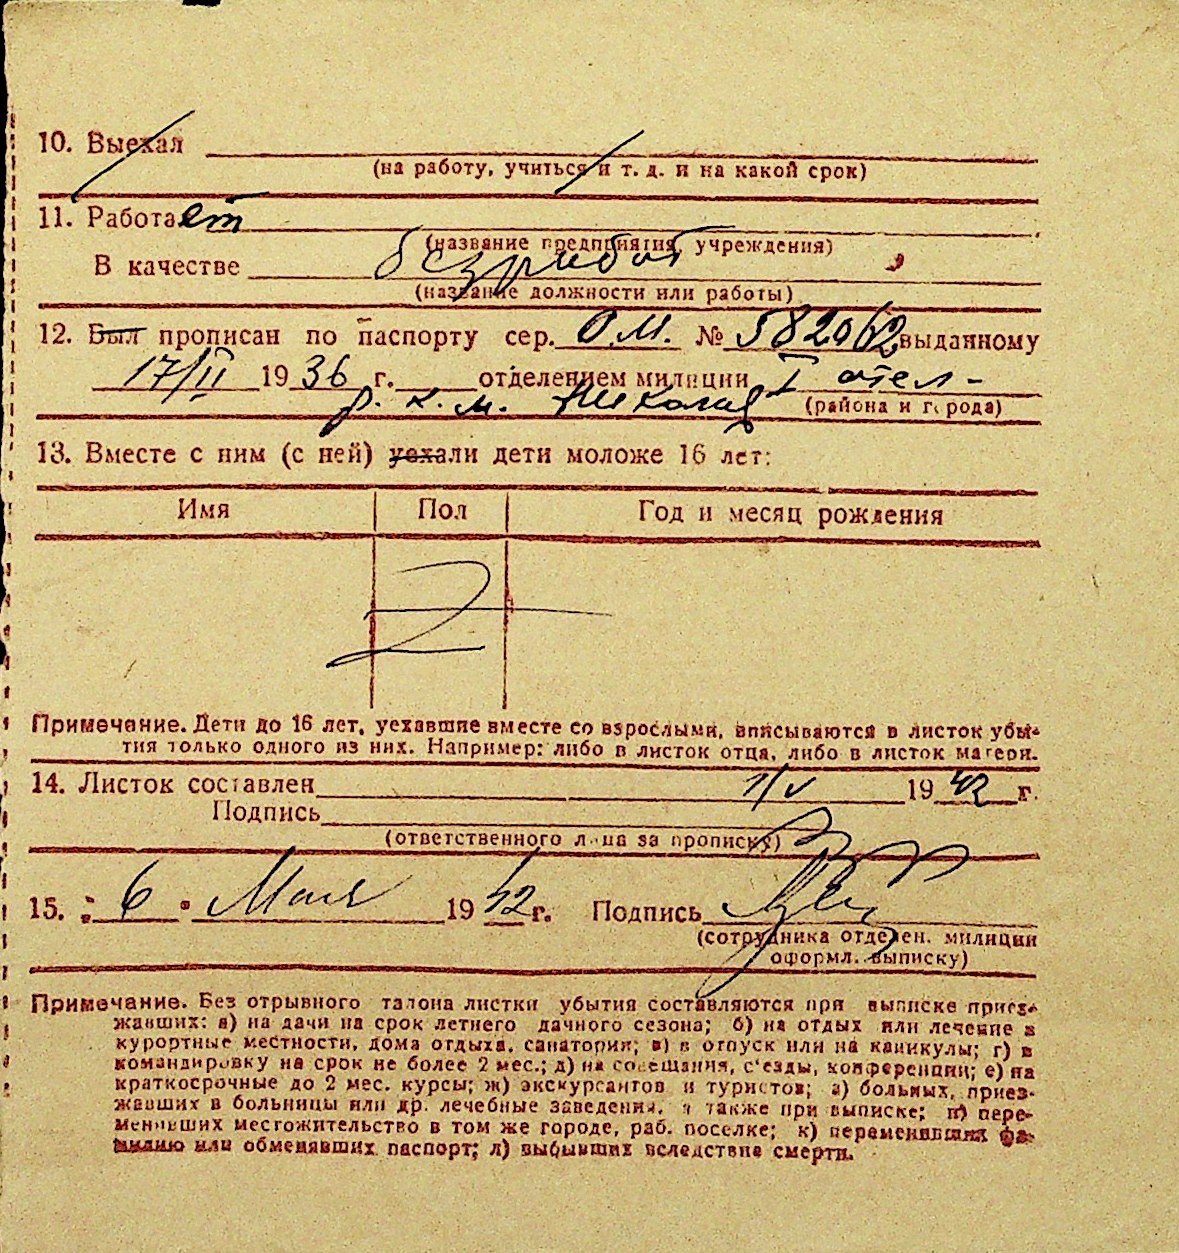 10. Выехал
(на работу, учиться и т. д. и на какой срок)
11. Работает
(название предприятия, учреждения)
В качестве безработ
(название должности или работы)
12. Был прописан по паспорту сер. О.М. № 582062 выданному
17/II 1936 г. отделением милиции I отел-
р. к. м. (района и города)
13. Вместе с ним (с ней) уехали дети моложе 16 лет:
Имя Пол Год и месяц рождения
Примечание. Дети до 16 лет, уехавшие вместе со взрослыми, вписываются в листок убы-
тия только одного из них. Например: либо в листок отца, либо в листок матери.
14. Листок составлен 1/V 1942 г.
Подпись
(ответственного лица за прописку)
15. "6" Мая 1942 г. Подпись
(сотрудника отделен. милиции
оформл. выписку)
Примечание. Без отрывного талона листки убытия составляются при выписке приез-
жавших: а) на дачи на срок летнего дачного сезона; б) на отдых или лечение в
курортные местности, дома отдыха, санатории; в) в отпуск или на каникулы; г) в
командировку на срок не более 2 мес.; д) на совещания, с'езды, конференции; е) на
краткосрочные до 2 мес. курсы; ж) экскурсантов и туристов; з) больных, приез-
жавших в больницы или др. лечебные заведения, а также при выписке; и) пере-
менивших местожительство в том же городе, раб. поселке; к) переменивших фа-
милию или обменявших паспорт; л) выбывших вследствие смерти.